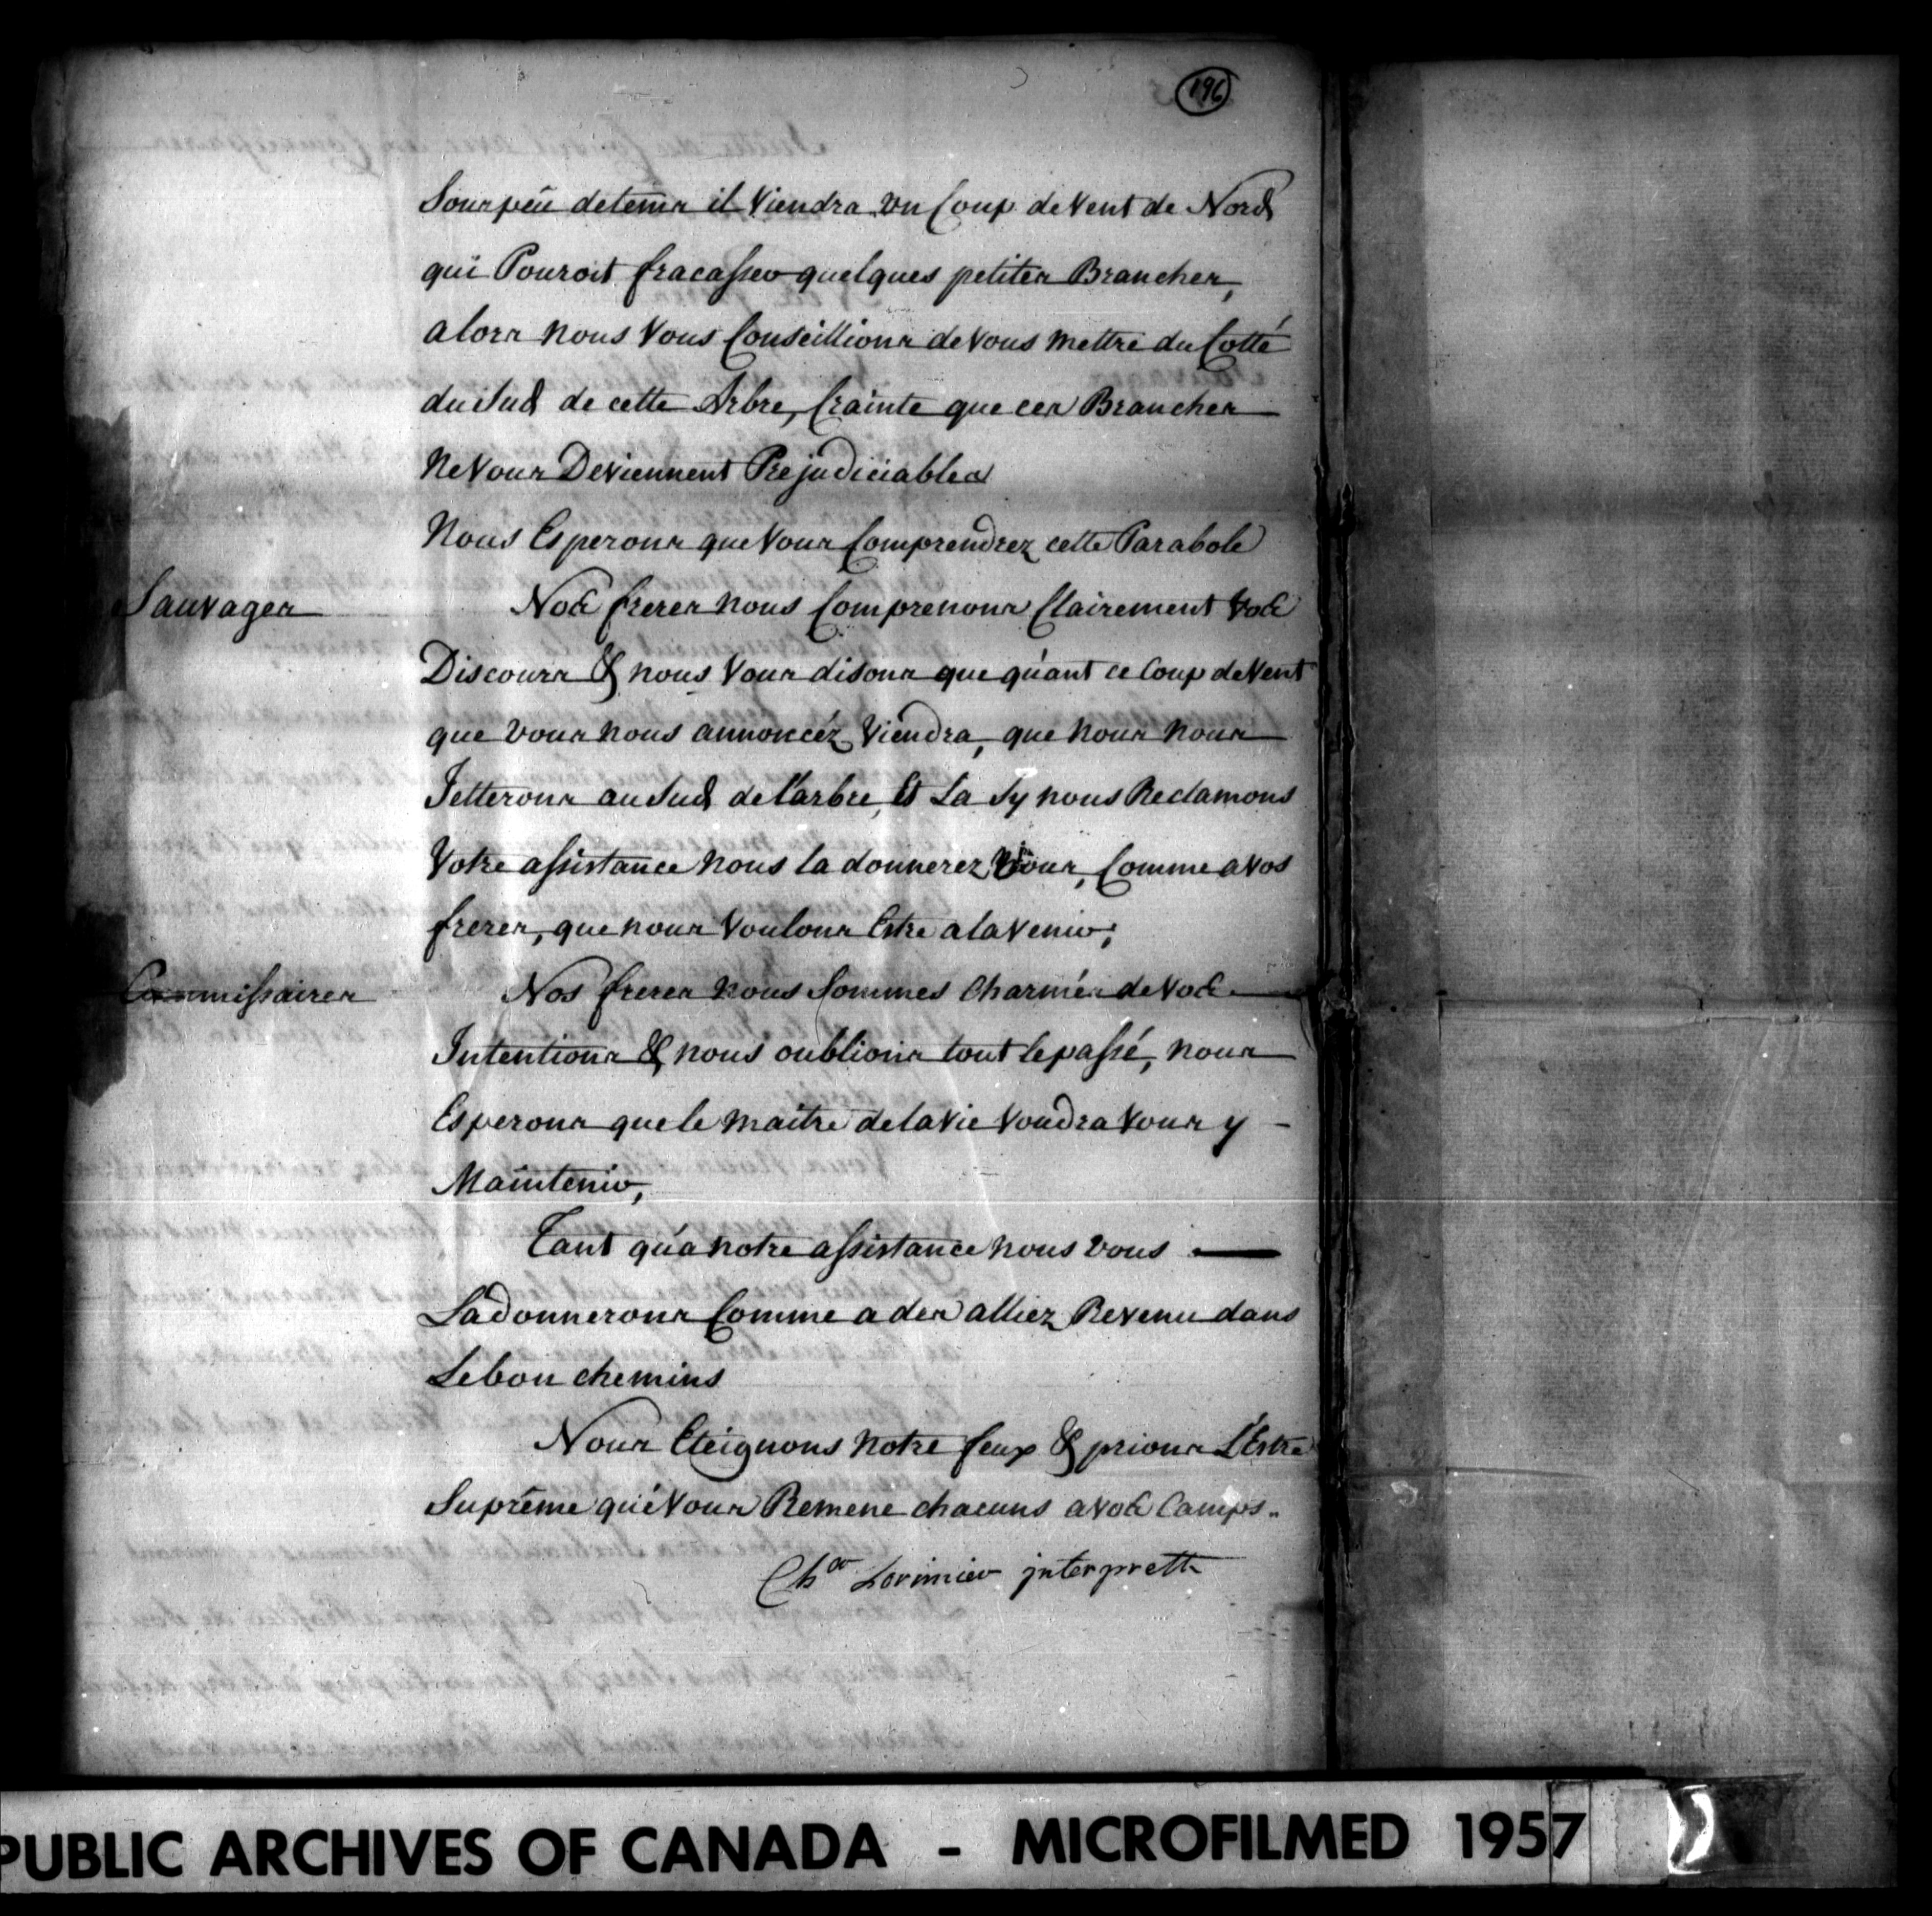 196
Sous peu detems il Viendra un Coup de Vent de Nord
qui Pouroit fracasser quelques petites Branches,
alors nous Vous Conseillions de Vous mettre du Cotté
du Sud de cette Arbre, Crainte que ces Branches
Ne Vous Deviennent Prejudiciables
Nous Esperons que Vous Comprendrez cette Parabole
Sauvages
Nos freres nous Comprenons Clairement Vos
Discours & nous Vous disons que quant ce Coup de Vent
que vous nous annoncéz Viendra, que nous nous
Jetterons au Sud de l'arbre, Et La Sy nous Reclamons
Votre assistance nous la donnerez Vous, Comme a Vos
freres, que nous Voulons Estre a lavenir;
Commissaires
Nos freres nous Sommes Charmés de Vos
Intentions & nous oublions tout le passé, nous
Esperons que le maitre de la Vie Voudra Vous y -
Maintenir,
Tant qu'a notre assistance nous vous
La donnerons Comme a des alliez Revenu dans
Le bon chemins
Nous Eteignons notre feux & prions L'Estre
Suprême qu'é Vous Remene chacuns a Vos Camps.
Chas Lorimier interprette
PUBLIC ARCHIVES OF CANADA - MICROFILMED 1957